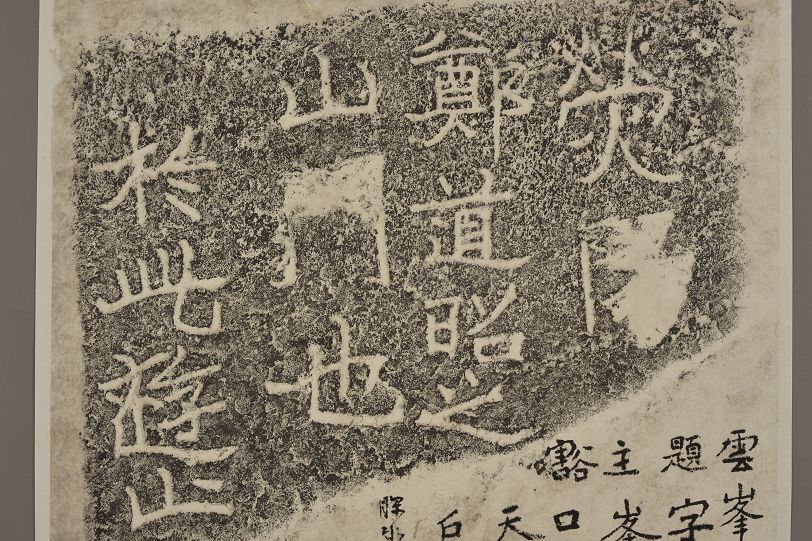 熒陽
鄭道昭之
山門也
於此遊止
雲峯
題字
主峯
豁口
天
白